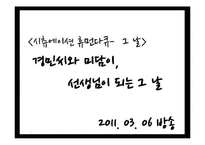 <시츄에이션 휴먼다큐- 그 날>
경민씨와 미담이,
선생님이 되는 그 날
2011. 03. 06 방송